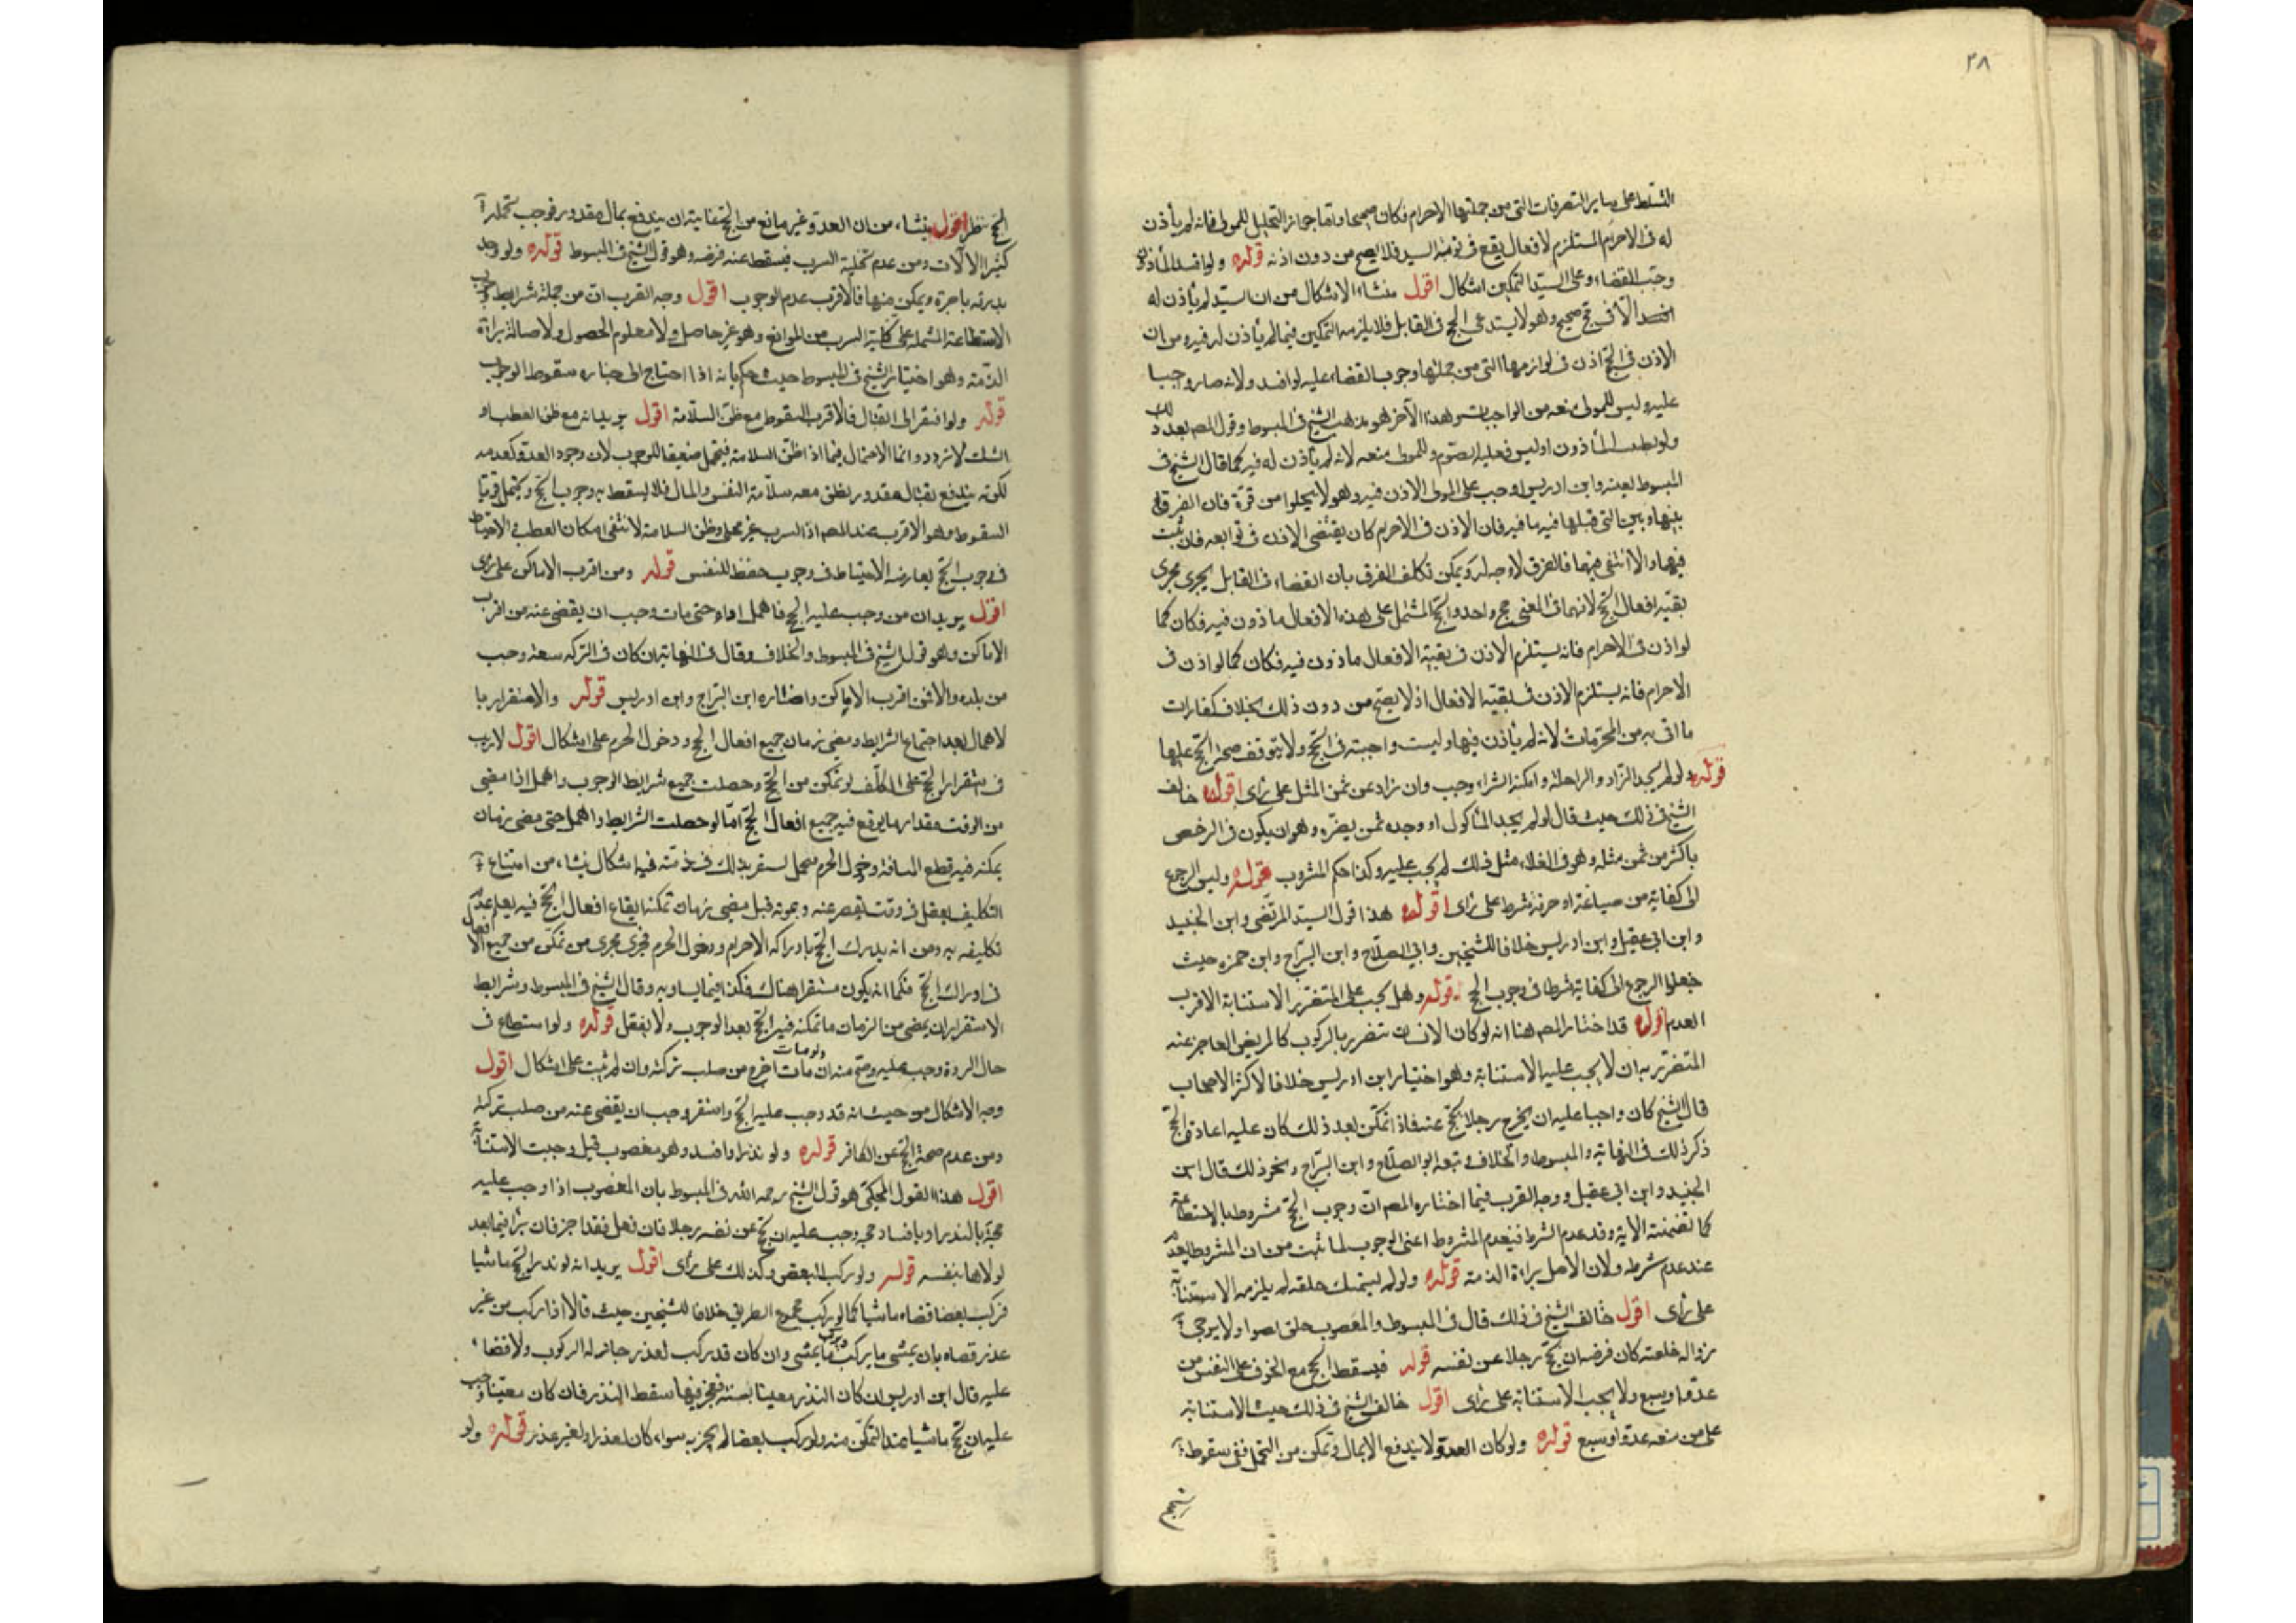 ٢٨
التسلط على ساير التصرفات التى من جملتها الاحرام فكان صحيحا واما جواز التحليل للمولى فانه لم يأذن
له فى الاحرام المستلزم لافعال يقع فى نوبة السيد فلا يصح من دون اذنه قوله ولو افسد المأذون
وجب القضاء وعلى السيد التمكين اشكال اقول منشاء الاشكال من ان السيد لم يأذن له
الا فى حج صحيح وهو لا يستدعى الحج فى القابل فلا يلزمه التمكين فيما لم يأذن له فيه ومن ان
الاذن فى الحج اذن فى لوازمها التى من جملتها وجوب القضاء عليه لو افسد ولانه صار واجبا
عليه وليس للمولى منعه من الواجبات وهذا الآخر هو مذهب الشيخ فى المبسوط وقول المصـ بعد ذلك
ولو تطيب المأذون او لبس فعليه الصوم وللمولى منعه لانه لم يأذن له فيه كما قال الشيخ فى
المبسوط بعينه وابن ادريس اوجب على المولى الاذن فيه وهو لا يخلوا من قوة فان الفرق
بينها وبين التى قبلها فيه ما فيه فان الاذن فى الاحرام كان يقتضى الاذن فى توابعه فان ثبت
فيهما والا انتفى فيهما فالفرق لا وجه له ويمكن تكلف الفرق بان القضاء فى القابل يجرى مجرى
بقية افعال الحج لانهما فى المعنى حج واحد والحج المشتمل على هذه الافعال ماذون فيه فكان كما
لو اذن فى الاحرام فانه يستلزم الاذن فى بقية الافعال ماذون فيه فكان كما لو اذن فى
الاحرام فانه يستلزم الاذن فى بقية الافعال اذ لا يصح من دون ذلك بخلاف كفارات
ما اتى به من المحرمات لانه لم يأذن فيها وليست واجبة فى الحج ولا يتوقف صحة الحج عليها
قوله ولو لم يجد الزاد والراحلة وامكنه الشراء وجب وان زاد عن ثمن المثل على رأى اقول خالف
الشيخ فى ذلك حيث قال لو لم يجد المأكول او وجده بثمن يضره وهو ان يكون فى الرخص
باكثر من ثمن مثله وهو فى الغلاء مثل ذلك لم يجب عليه وكذا حكم المشروب قوله وليس الرجوع
الى كفاية من صناعة او حرفة شرطا على رأى اقول هذا قول السيد المرتضى وابن الجنيد
وابن ابى عقيل وابن ادريس خلافا للشيخين وابى الصلاح وابن البراج وابن حمزه حيث
جعلوا الرجوع الى كفاية شرطا فى وجوب الحج قوله وهل يجب على المتضرر الاستنابة الاقرب
العدم اقول قد اختار المصـ هنا انه لو كان الانسان يتضرر بالركوب كالمريض العاجز عنه
المتضرر به ان لا يجب عليه الاستنابة وهو اختيار ابن ادريس خلافا لاكثر الاصحاب
قال الشيخ كان واجبا عليه ان يخرج رجلا يحج عنه فاذا تمكن بعد ذلك كان عليه اعادة الحج
ذكر ذلك فى النهاية والمبسوط والخلاف وتبعه ابو الصلاح وابن البراج ونحو ذلك قال ابن
الجنيد وابن ابى عقيل ووجه القرب فيما اختاره المصـ ان وجوب الحج مشروط بالاستطاعة
كما تضمنته الاية وقد عدم الشرط فيعدم المشروط اعنى الوجوب لما ثبت من ان المشروط يعدم
عند عدم شرطه ولان الاصل براءة الذمة قوله ولو لم يستمسك خلقة لم يلزمه الاستنابة
على رأى اقول خالف الشيخ فى ذلك قال فى المبسوط والمعضوب خلق نضوا ولا يرجى
زواله خلقته كان فرضه ان يحج رجلا عن نفسه قوله فيسقط الحج مع الخوف على النفس من
عدو او سبع ولا يجب الاستنابة على رأى اقول خالف الشيخ فى ذلك حيث الاستنابة
على من منعه عدو او سبع قوله ولو كان العدو لا يندفع الا بمال وتمكن من التحمل ففى سقوط
الحج نظر اقول ينشاء من ان العدو غير مانع من الحج غايته ان يندفع بمال مقدور فوجب تحمله
كثيرا لآلات ومن عدم تخلية السرب فيسقط عنه فرضه وهو قول الشيخ فى المبسوط قوله ولو وجد
بدرقه باجرة ويمكن منها فالاقرب عدم الوجوب اقول وجه القرب ان من جملة شرايط وجوب
الاستطاعة المشتملة على تخلية السرب من الموانع وهو غير حاصل ولا معلوم الحصول ولاصالة براءة
الذمة وهو اختيار الشيخ فى المبسوط حيث حكم بانه اذا احتاج الى خفاره سقوط الوجوب
قوله ولو افتقر الى القتال فالاقرب السقوط مع ظن السلامة اقول يريد انه مع ظن العطب او
الشك لا تردد وانما الاحتمال فيما اذا ظن السلامة فيحتمل ضعيفا الوجوب لان وجود العدو كعدمه
لكونه يندفع بقتال مقدور يظن معه سلامة النفس والمال فلا يسقط به وجوب الحج ويحتمل قويا
السقوط وهو الاقرب عند المصـ اذ السرب غير مخلى وظن السلامة لا تنفى امكان العطب والاحتياط
فى وجوب الحج يعارضه الاحتياط فى وجوب حفظ النفس قوله ومن اقرب الاماكن على رأى
اقول يريد ان من وجب عليه الحج فاهمل اداءه حتى مات وجب ان يقضى عنه من اقرب
الاماكن وهو قول الشيخ فى المبسوط والخلاف وقال فى النهاية ان كان فى التركه سعة وجب
من بلده والا فمن اقرب الاماكن واختاره ابن البراج وابن ادريس قوله والاستقرار با
لاهمال بعد اجتماع الشرايط ومضى زمان جميع افعال الحج ودخول الحرم على اشكال اقول لا ريب
فى استقرار الحج على المكلف لو تمكن من الحج وحصلت جميع شرايط الوجوب واهمل اذا مضى
من الوقت مقدار ما يوقع فيه جميع افعال الحج اما لو حصلت الشرايط واهمل حتى مضى زمان
يمكنه فيه قطع المسافة ودخول الحرم محمل يستقر بذلك فى ذمته فيه اشكال ينشاء من امتناع
التكليف بفعل فى وقت يقصر عنه وبموته قبل مضى زمان تمكنه ايقاع افعال الحج فيه يعلم عدم
تكليفه به ومن انه يدرك الحج بادراكه الاحرام ودخول الحرم فجرى مجرى من تمكن من جميع الافعال
فى ادراك الحج فكما انه يكون مستقرا هناك فكذا فيما يساويه وقال الشيخ فى المبسوط وشرايط
الاستقرار ان يمضى من الزمان ما تمكنه فيه الحج بعد الوجوب ولا يفعل قوله ولو استطاع فى
حال الردة وجب عليه وصح منه ولو مات ان مات اخرج من صلب تركته وان لم يتب على اشكال اقول
وجه الاشكال من حيث انه قد وجب عليه الحج واستقر وجب ان يقضى عنه من صلب تركته
ومن عدم صحة الحج عن الكافر قوله ولو نذر او افسد وهو معضوب قيل وجبت الاستنابة
اقول هذا القول المحكى هو قول الشيخ رحمه الله فى المبسوط بان المعضوب اذا وجب عليه
حجة بالنذر او بافساد حجه وجب عليه ان يحج عن نفسه رجلا فان فعل فقد اجز فان برأ فيما بعد
تولاها بنفسه قوله ولو ركب البعض وكذلك على رأى اقول يريد انه لو نذر الحج ماشيا
فركب بعضا قضاه ماشيا كما لو ركب جميع الطريق خلافا للشيخين حيث قالا اذا ركب من غير
عذر قضاه بان يمشى ما ركب ويركب ما يمشى وان كان قد ركب لعذر جاز له الركوب ولا قضاء
عليه قال ابن ادريس ان كان النذر معينا بسنة فعجز فيها سقط النذر فان كان معينا وجب
عليه ان يحج ماشيا عند التمكن منه ولو ركب بعضا لم يجز به سواء كان لعذر او لغير عذر قوله ولو